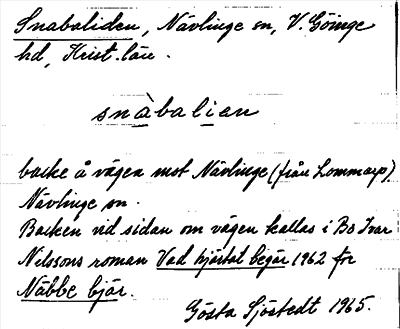 Snabaliden, Nävlinge sn, V. Göinge
hd, Krist. län.
snàbalien
backe å vägen mot Nävlinge (från Lommarp),
Nävlinge sn.
Backen vid sidan om vägen kallas i Bo Ivar
Nilssons roman Vad hjärtat begär 1962 för
Näbbe bjär.
Gösta Sjöstedt 1965.